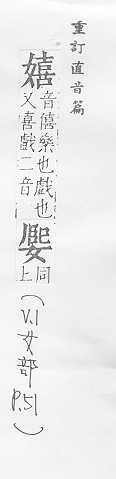 重訂直音篇
嬉音僖樂也戲也
又喜戲二音
㜯同上
(V.1女部
P.51)